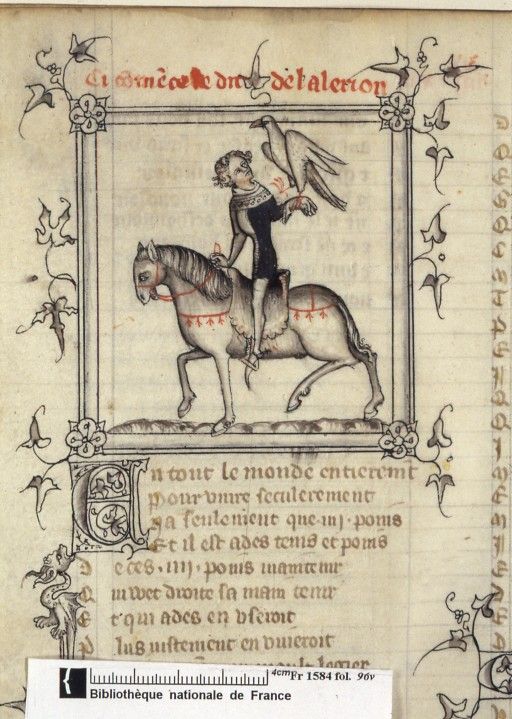 Ci cōmēce le dit de lalerion
En tout le monde entieremt
Pour viure seculerement
Na seulement que .iiij. poins
Et il est ades tems et poins
De ces .iiij. poins maintenir
Qui wet droite sa main tenir
Et qui ades en vseroit
Plus iustement en viueroit
4cm Fr 1584 fol. 96v
Bibliothèque nationale de France